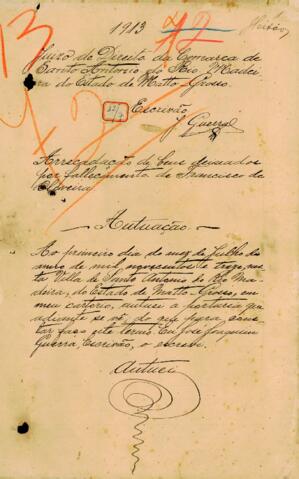 1913
42
13
42
Juizo de Direito da Comarca de
Santo Antonio do Rio Madei-
ra do Estado de Matto Grosso.
Escrivão
J Guerra
Arrecadação de bens deixados
por fallecimento de Francisco de
Oliveira
Autuação
Ao primeiro dia do mez de Julho do
anno de mil novecentos e treze, nes-
ta Villa de Santo Antonio do Rio Ma-
deira, do Estado de Matto Grosso, em
meu cartorio, autuei a portaria que
adiante se vê, do que para cons-
tar faço este termo. Eu, José Joaquim
Guerra, Escrivão, o escrevi.
Autuei